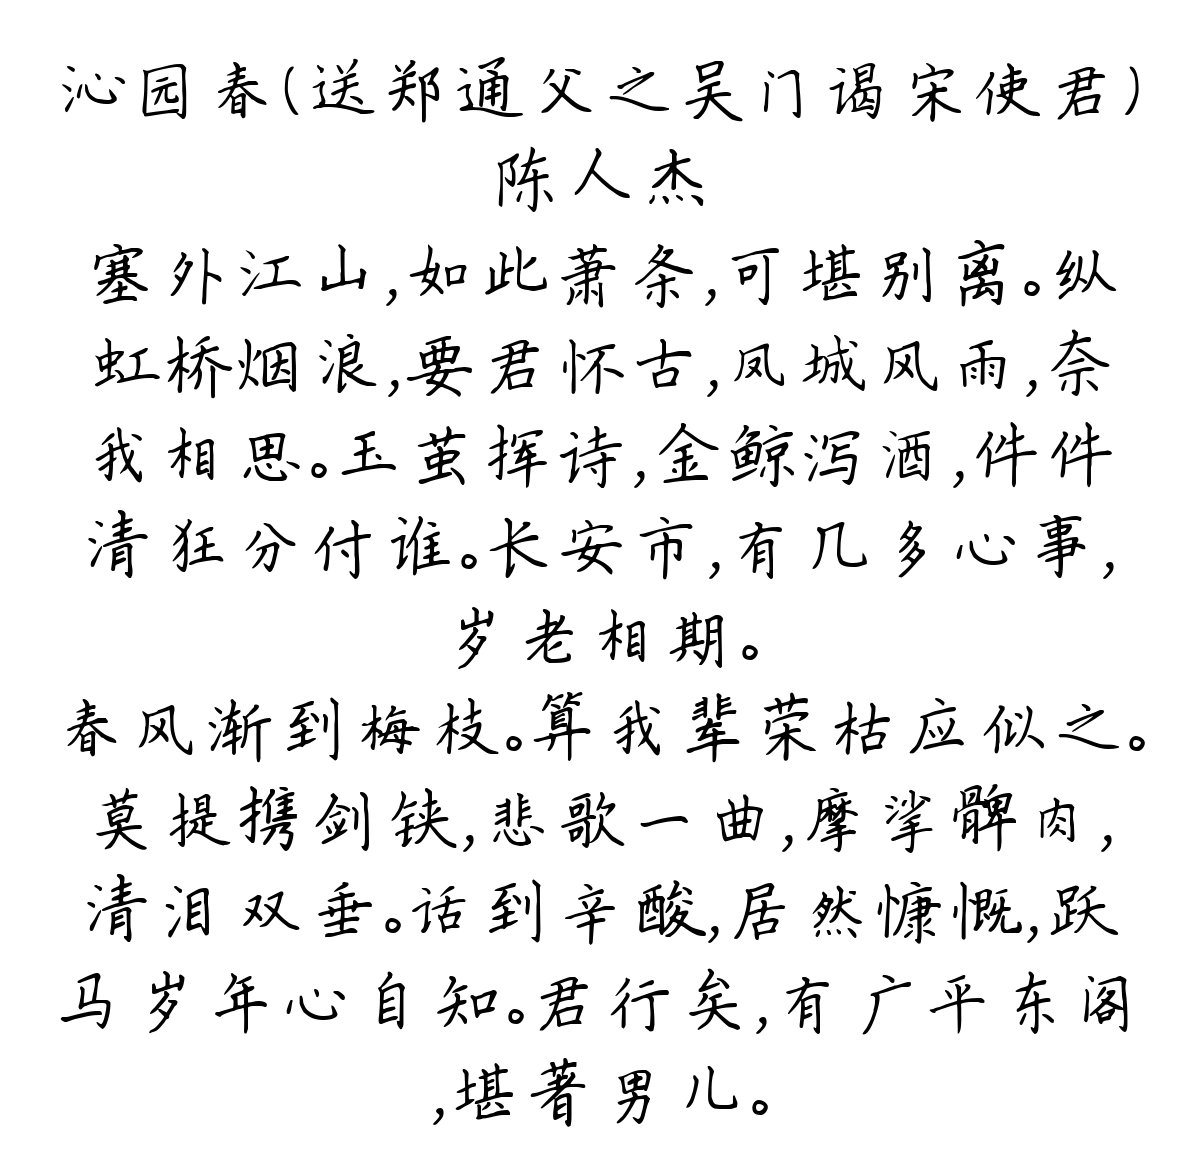 沁园春(送郑通父之吴门谒宋使君)
陈人杰
塞外江山,如此萧条,可堪别离。纵
虹桥烟浪,要君怀古,凤城风雨,奈
我相思。玉茧挥诗,金鲸泻酒,件件
清狂分付谁。长安市,有几多心事,
岁老相期。
春风渐到梅枝。算我辈荣枯应似之。
莫提携剑铗,悲歌一曲,摩挲髀肉,
清泪双垂。话到辛酸,居然慷慨,跃
马岁年心自知。君行矣,有广平东阁
,堪著男儿。